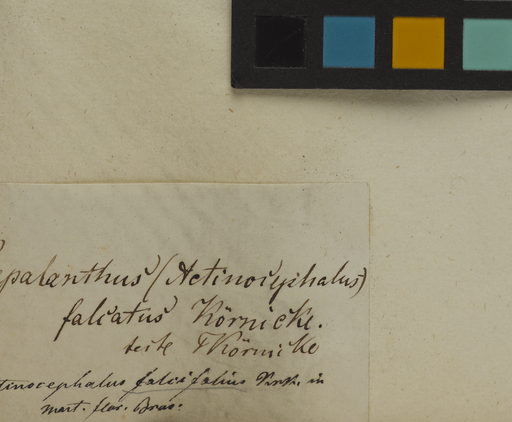 epalanthus (Actinocephalus)
falcatus Körnicke.
teste Körnicke
tinocephalus falcifolius Krnk. in
mart. flor. Bras: